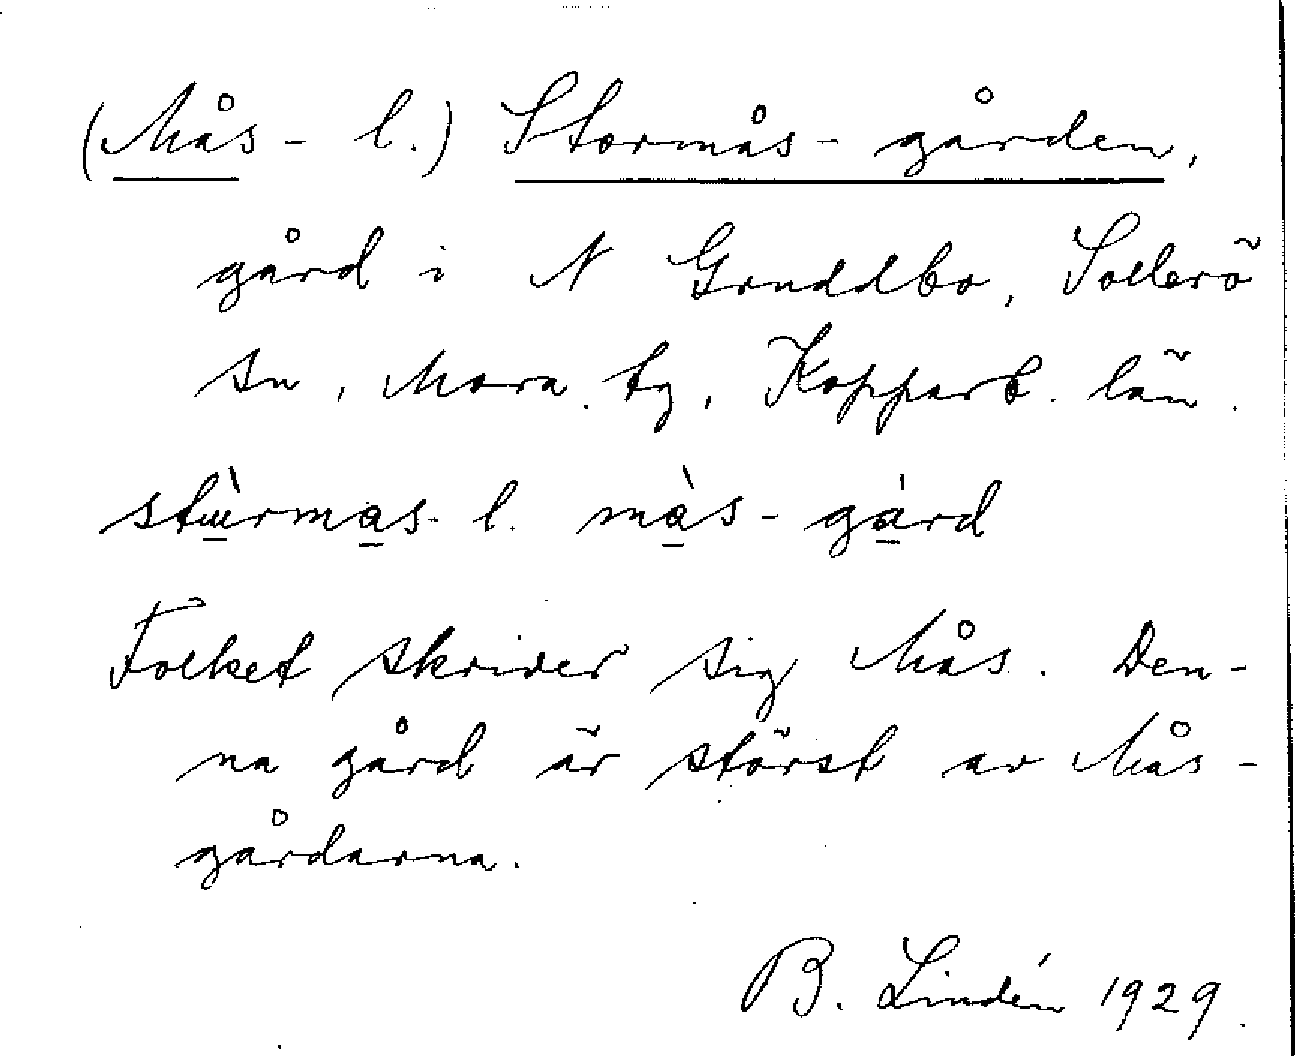 (Mås- l.) Stormås-gården,
gård i N Gruddbo, Sollerö
sn, Mora tg, Kopparb. län.
stùrmas- l. màs-gàrd
Folket skriver sig Mås. Den-
na gård är störst av Mås-
gårdarna.
B. Lindén 1929.